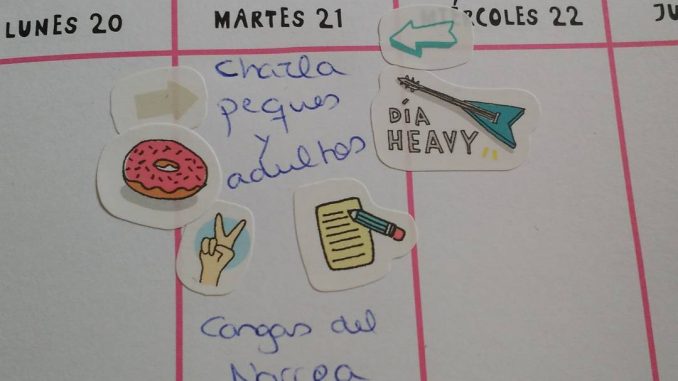 LUNES 20
MARTES 21
RCOLES 22
JU
charla
peques
y
adultos
DÍA
HEAVY
Cangas del
Narcea